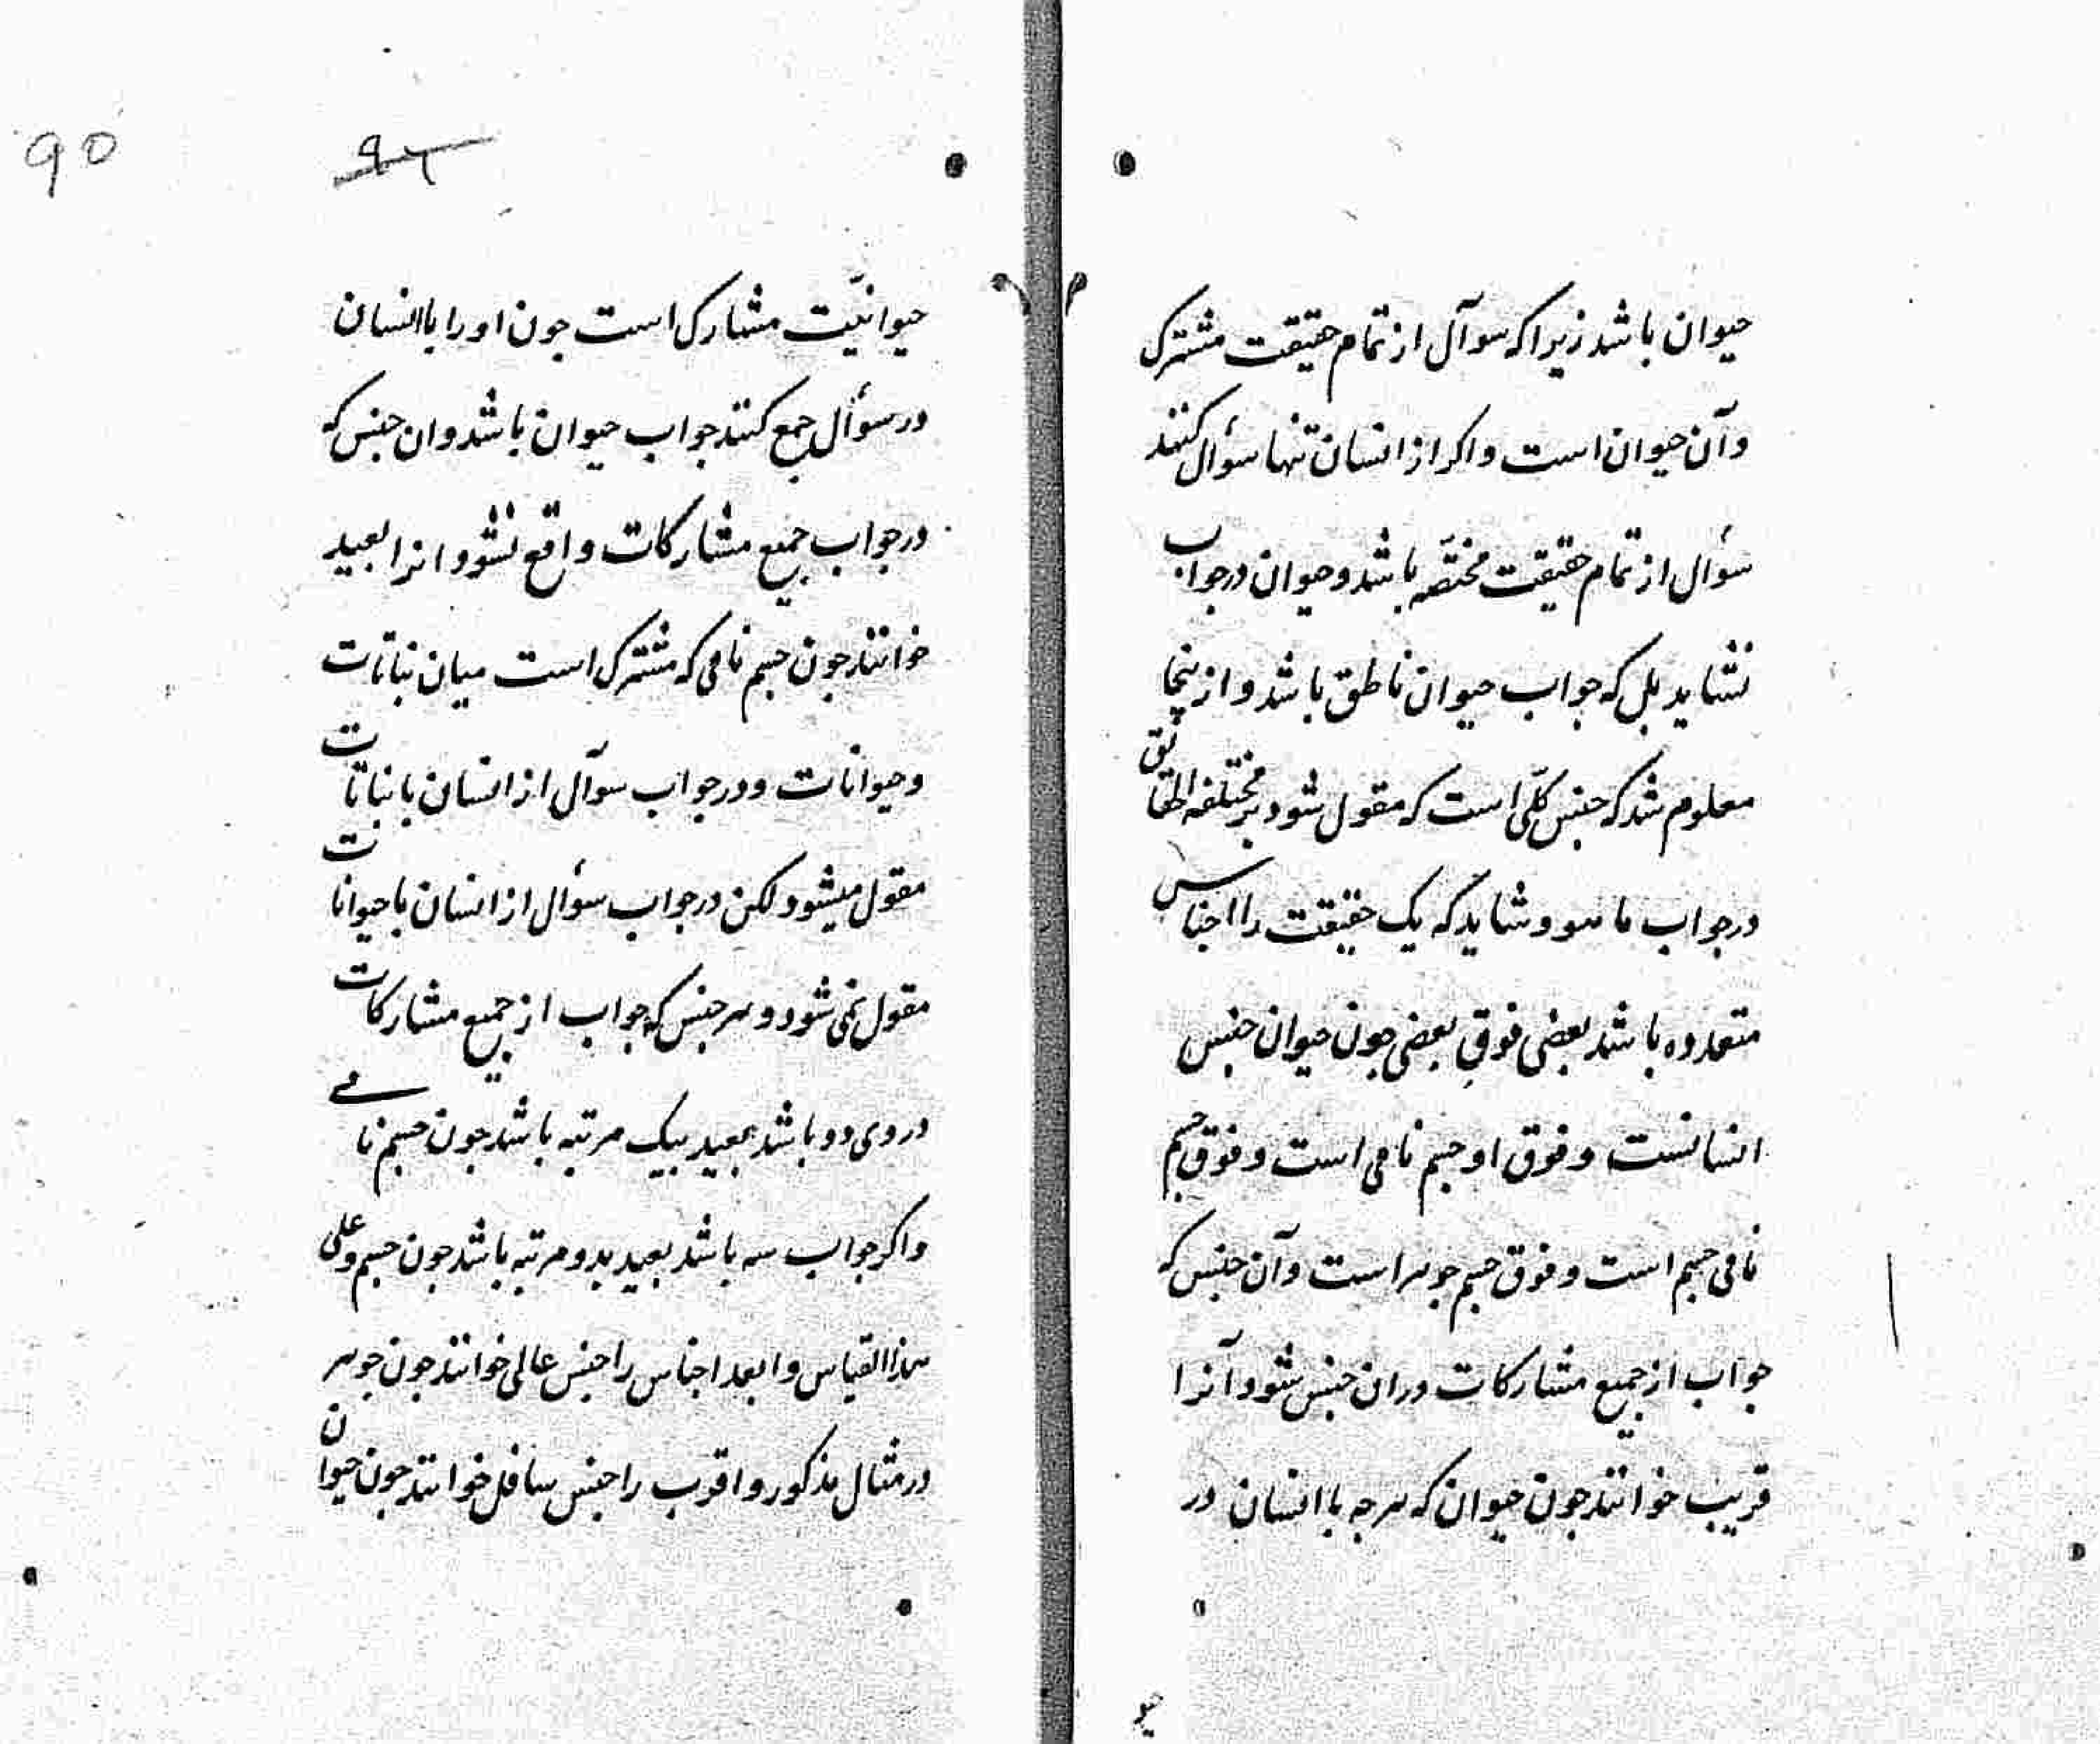 حیوان باشد زیرا که سوآل از تمام حقیقت مشترک
وآن حیوان است واکر از انسان تنها سؤال کنند
سؤال از تمام حقیقت مختصّه باشد وحیوان در جواب
نشاید بل که جواب حیوان ناطق باشد واز ینجا
معلوم شد که جنس کلّی است که مقول شود بر مختلفه الحقائق
در جواب ما هو وشاید که یک حقیقت را اجناس
متعدده باشد بعضی فوق بعضی جون حیوان جنس
انسانست وفوق او جسم نامی است وفوق جسم
نامی جسم است وفوق جسم جوهر است وآن جنس که
جواب از جمیع مشارکات دران جنس شود آنرا
قریب خوانند جون حیوان که هر جه با انسان در
حیو
90
۹۲
حیوانیّت مشارک است جون او را با انسان
در سؤال جمع کنند جواب حیوان باشد وان جنس که
در جواب جمیع مشارکات واقع نشود انرا بعید
خوانند جون جسم نامی که مشترک است میان نباتات
وحیوانات ودر جواب سوآل از انسان با نباتات
مقول میشود لکن در جواب سؤال از انسان با حیوانات
مقول نمی شود وهر جنس که جواب از جمیع مشارکات
در وی دو باشد بعید بیک مرتبه باشد جون جسم نامی
واکر جواب سه باشد بعید بدو مرتبه باشد جون جسم وعلی
هذا القیاس وابعد اجناس را جنس عالی خوانند جون جوهر
در مثال مذکور واقرب را جنس سافل خوانند جون حیوان